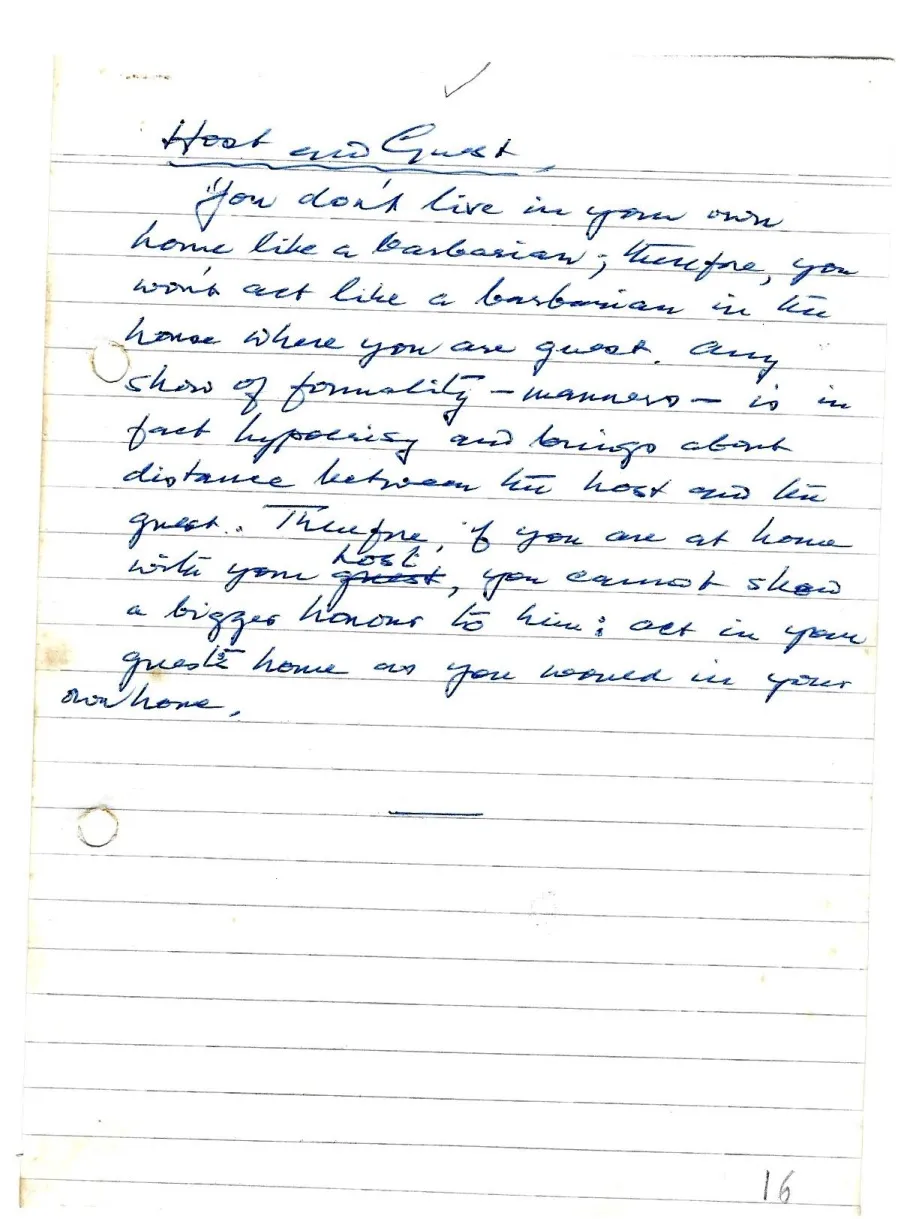 Host and Guest.
"You don't live in your own
home like a barbarian; therefore, you
won't act like a barbarian in the
house where you are guest. Any
show of formality - manners - is in
fact hypocrisy and brings about
distance between the host and the
guest. Therefore, if you are at home
with your guest host, you cannot show
a bigger honour to him: act in your
guest's home as you would in your
own home.
16